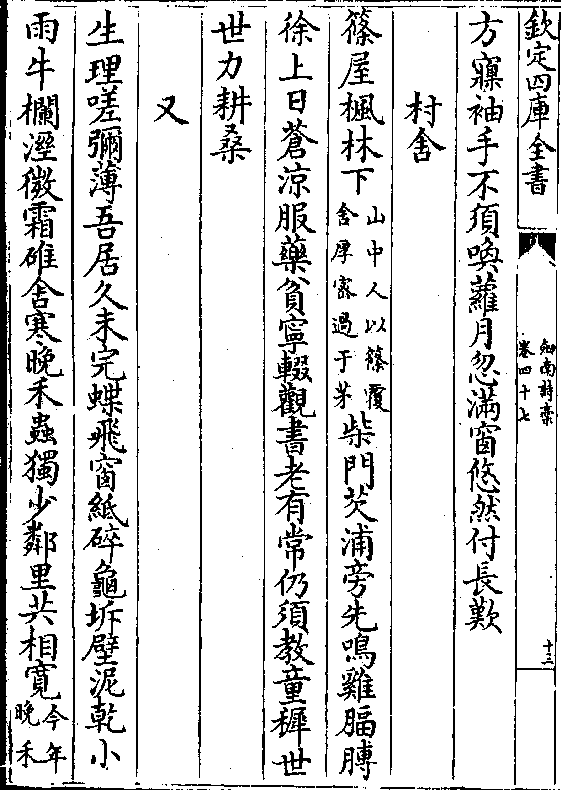 欽定四庫全書
劍南詩藁
卷四十七
十三
方寢袖手不須喚蘿月忽滿窗悠然付長歎
村舍
篠屋楓林下山中人以篠覆舍厚密過于茅柴門芡浦旁先鳴雞腷膊
徐上日蒼涼服藥貧寧輟觀書老有常仍須教童穉世
世力耕桑
又
生理嗟彌薄吾居久未完蝶飛窗紙碎龜坼壁泥乾小
雨牛欄溼微霜碓舍寒晚禾蟲獨少鄰里共相寬今年晚禾